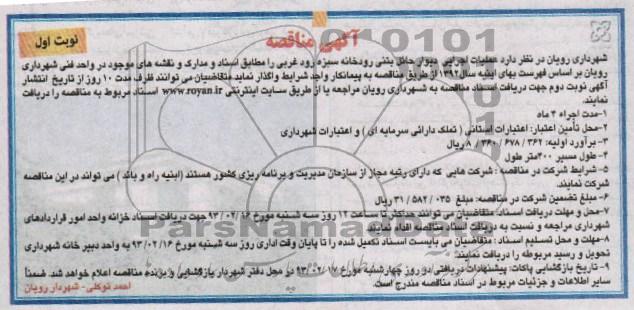 آگهی مناقصه
نوبت اول
شهرداری رویان در نظر دارد عملیات اجرایی دیوار حائل بتنی رودخانه سبزه رود غربی را مطابق اسناد و مدارک و نقشه های موجود در واحد فنی شهرداری
رویان بر اساس فهرست بهای ابنیه سال ۱۳۹۲ از طریق مناقصه به پیمانکار واجد شرایط واگذار نماید متقاضیان می توانند ظرف مدت ۱۰ روز از تاریخ انتشار
آگهی نوبت دوم جهت دریافت اسناد مناقصه به شهرداری رویان مراجعه یا از طریق سایت اینترنتی www.royan.ir اسناد مربوط به مناقصه را دریافت
نمایند.
۱-مدت اجراء ۴ ماه
۲-محل تأمین اعتبار: اعتبارات استانی ( تملک دارائی سرمایه ای ) و اعتبارات شهرداری
۳- برآورد اولیه: ۳۶۲ / ۶۷۸ / ۳۶۰ / ۸ ریال
۴- طول مسیر ۴۰۰متر طول
۵- شرایط شرکت در مناقصه : شرکت هایی که دارای رتبه مجاز از سازمان مدیریت و برنامه ریزی کشور هستند (ابنیه راه و باند ) می تواند در این مناقصه
شرکت نمایند.
۶- مبلغ تضمین شرکت در مناقصه: مبلغ ۰۳۵ / ۵۸۲ / ۳۱ ریال
۷- محل و مهلت دریافت اسناد: متقاضیان می توانند حداکثر تا ساعت ۱۲ روز سه شنبه مورخ ۹۳/۰۲/۱۶ جهت دریافت اسناد خزانه واحد امور قراردادهای
شهرداری مراجعه و نسبت به دریافت اسناد مناقصه اقدام نمایند.
۸-مهلت و محل تسلیم اسناد: متقاضیان می بایست اسناد تکمیل شده را تا پایان وقت اداری روز سه شنبه مورخ ۹۳/۰۲/۱۶ به واحد دبیر خانه شهرداری
تحویل و رسید مربوطه را دریافت نمایند.
۹- تاریخ بازگشایی پاکات: پیشنهادات دریافتی در روز چهارشنبه مورخ ۹۳/۰۲/۱۷ در محل دفتر شهردار بازگشایی و برنده مناقصه اعلام خواهد شد. ضمناً
سایر اطلاعات و جزئیات مربوط در اسناد مناقصه مندرج است.
احمد توکلی - شهردار رویان
ParsNamaddata